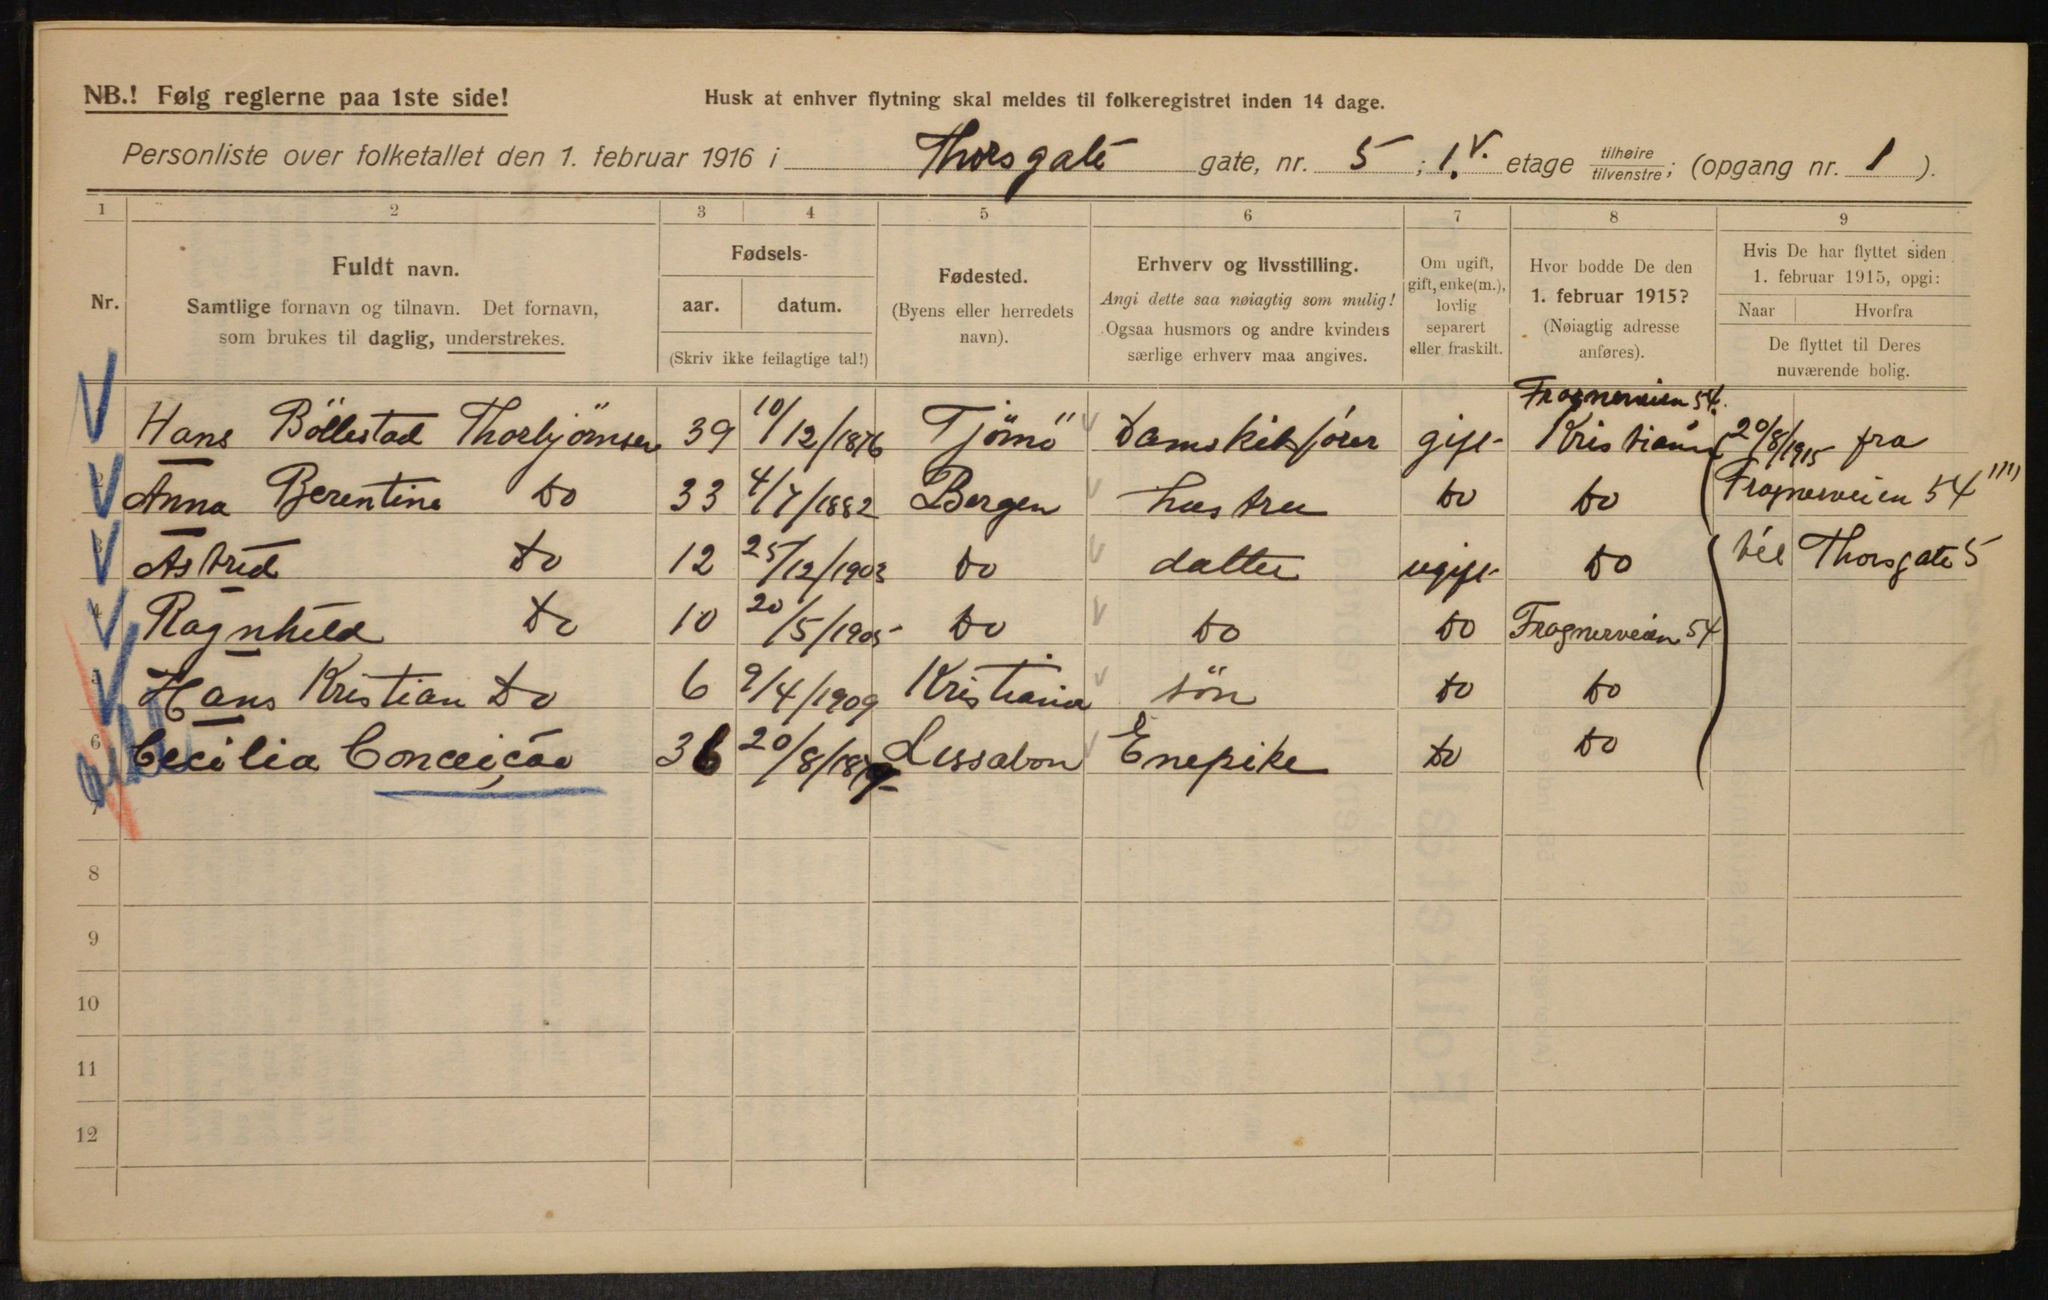 NB.! Følg reglerne paa 1ste side!
Husk at enhver flytning skal meldes til folkeregistret inden 14 dage.
Personliste over folketallet den 1. februar 1916 i Thorsgate gate, nr. 5 ; 1. v. etage tilhøire/tilvenstre; (opgang nr. 1 ).
1 2 3 4 5 6 7 8 9
Nr.
Fuldt navn.
Samtlige fornavn og tilnavn. Det fornavn,
som brukes til daglig, understrekes.
Fødsels-
aar. datum.
(Skriv ikke feilagtige tal!)
Fødested.
(Byens eller herredets
navn).
Erhverv og livsstilling.
Angi dette saa nøiagtig som mulig!
Ogsaa husmors og andre kvinders
særlige erhverv maa angives.
Om ugift,
gift, enke(m.),
lovlig
separert
eller fraskilt.
Hvor bodde De den
1. februar 1915?
(Nøiagtig adresse
anføres).
Hvis De har flyttet siden
1. februar 1915, opgi:
Naar Hvorfra
De flyttet til Deres
nuværende bolig.
Frognerveien 54.
Hans Böllestad Thorbjörnsen 39 10/12/1876 Tjömö Damskibsförer gift Kristiania 20/8/1915 fra
2 Anna Berentine Do 33 4/7/1882 Bergen hustru Do Do Frognerveien 54
3 Astrid Do 12 25/12/1903 Do datter ugift Do til Thorsgate 5
4 Ragnhild Do 10 20/5/1905 Do Do Do Frognerveien 54
5 Hans Kristian Do 6 9/4/1909 Kristiania sön Do Do
6 Cecilia Conceiçáo 36 20/8/1879 Lissabon Enepike Do Do
7
8
9
10
11
12